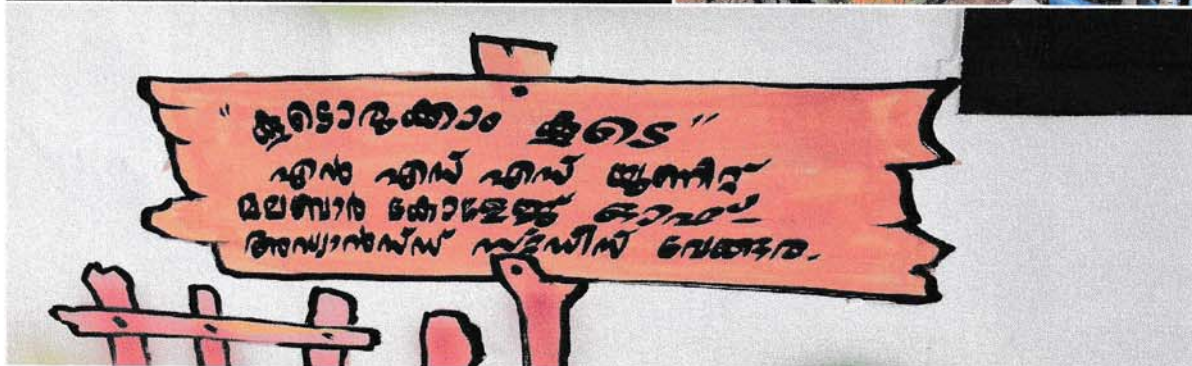 "കൂടൊരുക്കാം കൂടെ"
എൻ എസ് എസ് യൂണിറ്റ്
മലബാർ കോളേജ് ഓഫ്
അഡ്വാൻസ്ഡ് സ്റ്റഡീസ് വേങ്ങര.